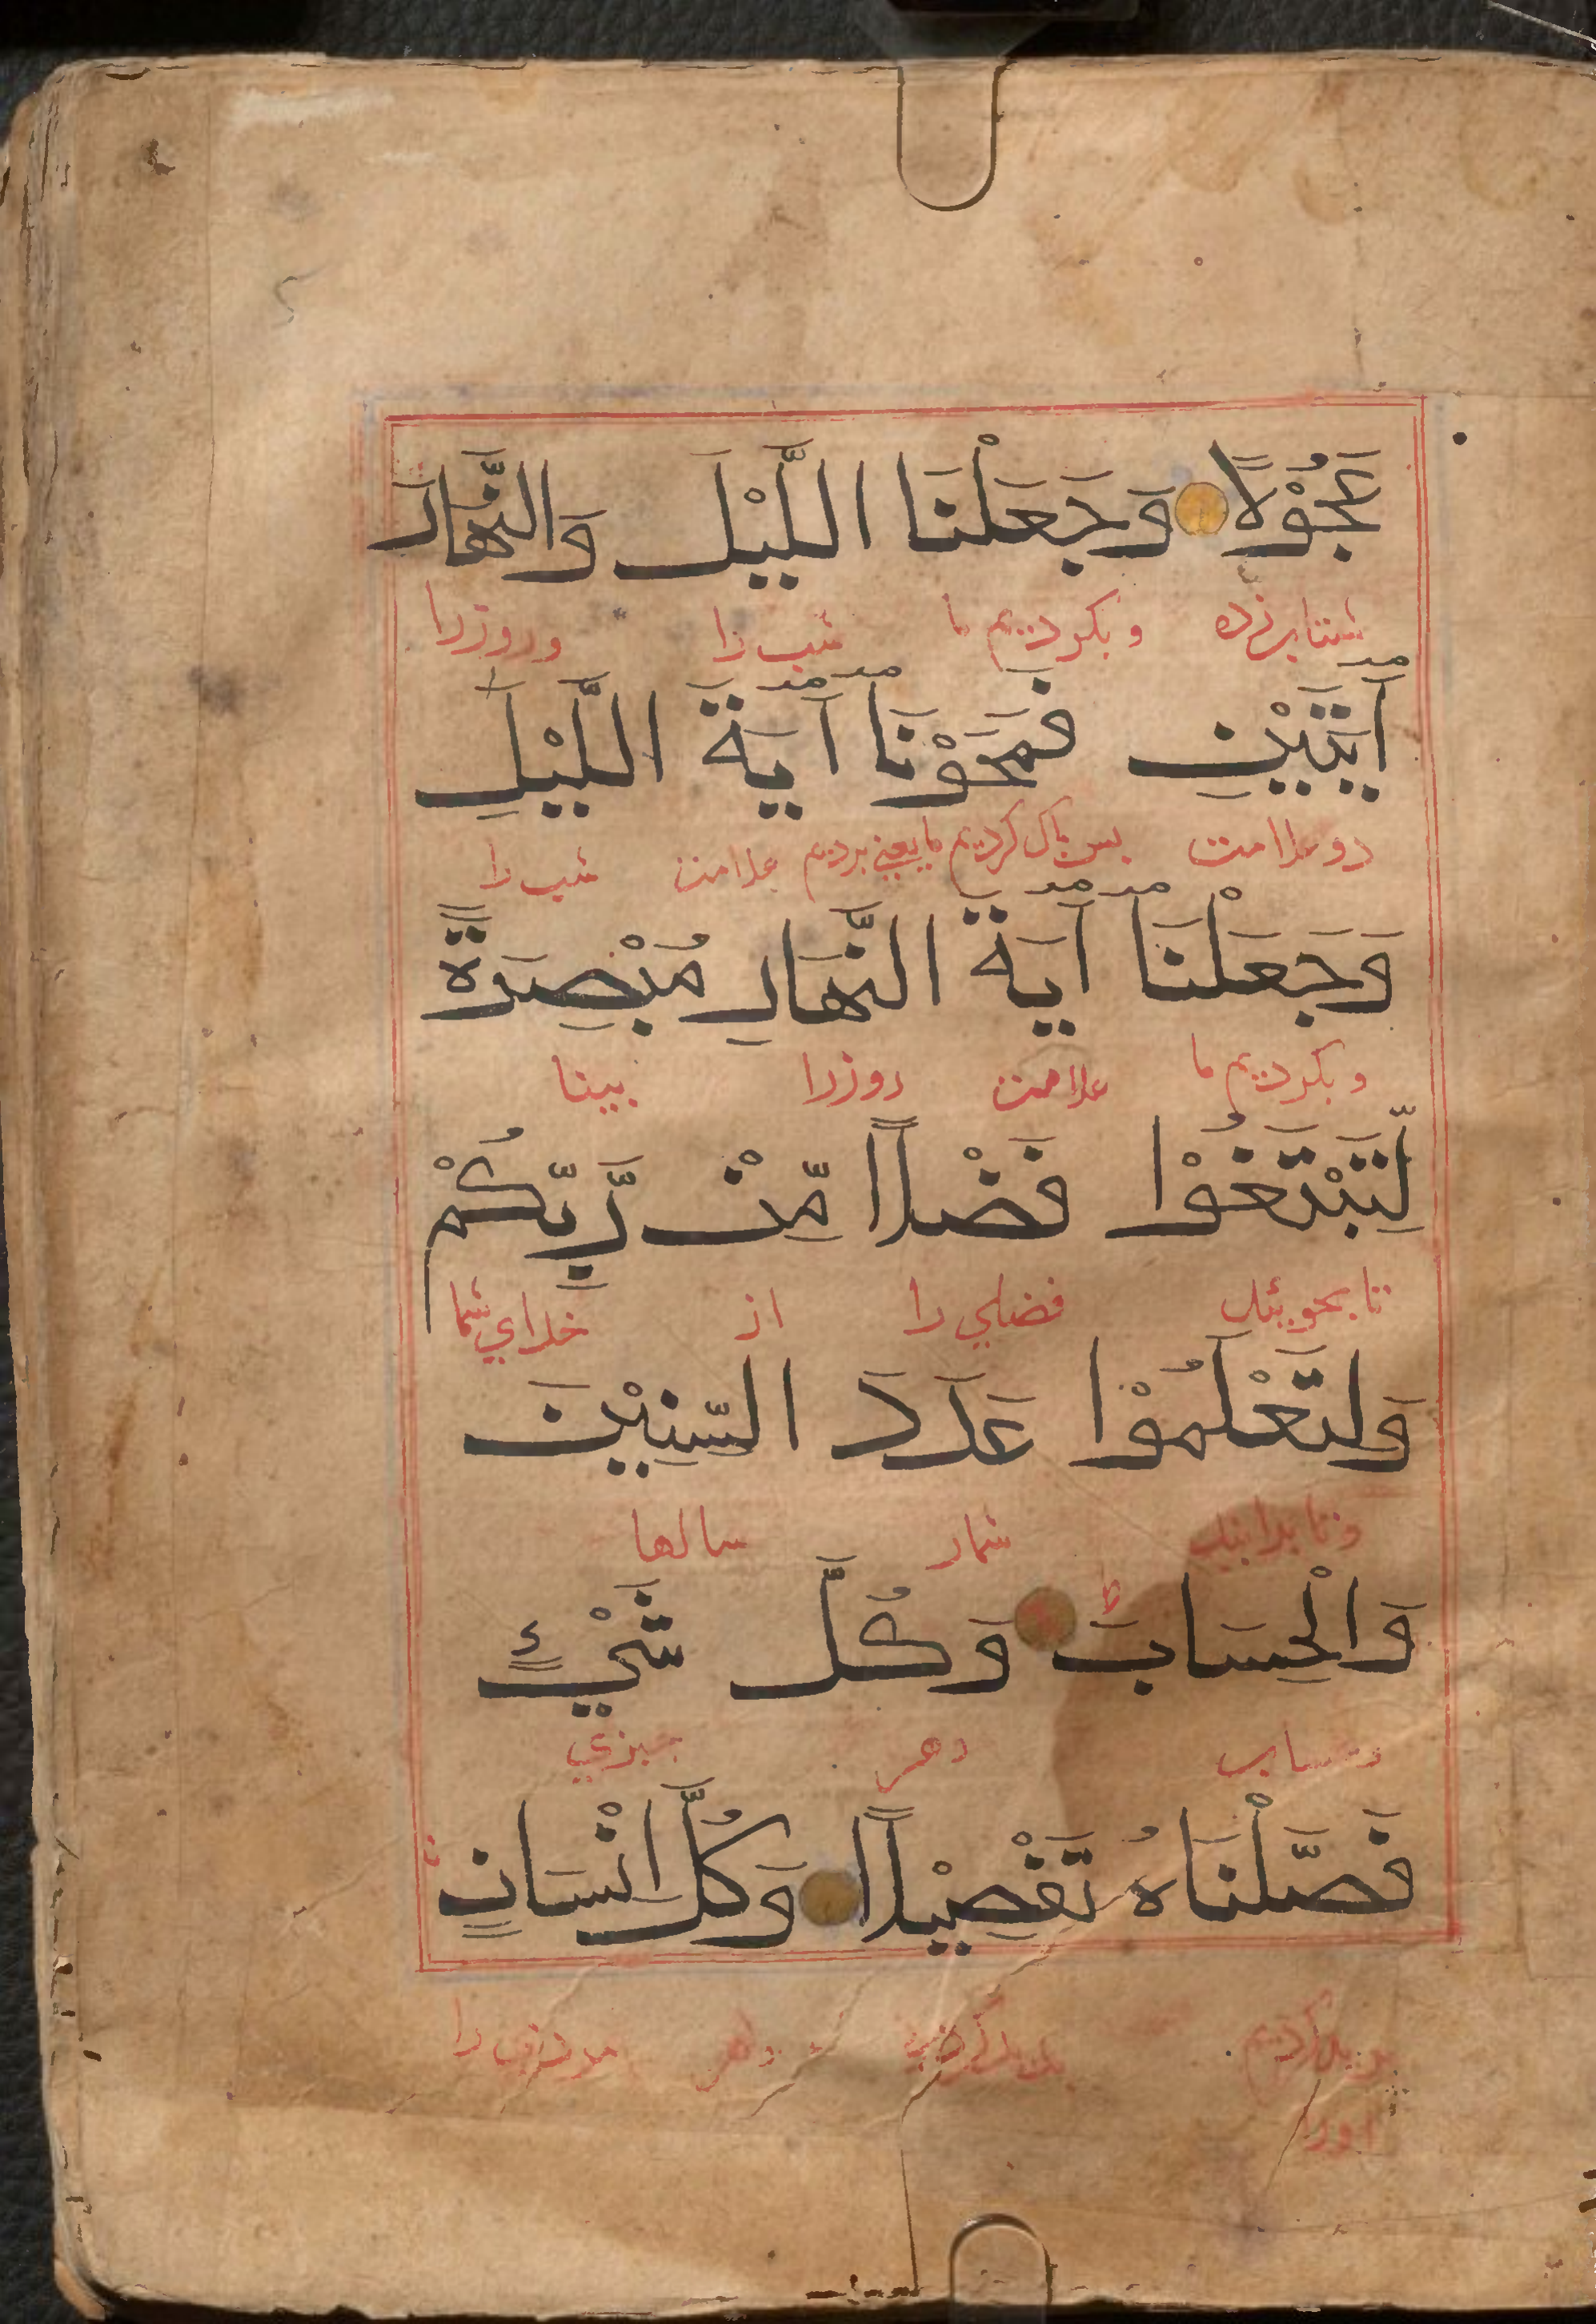 عَجُوْلًا وَجَعَلْنَا اللَّيْلَ وَالنَّهَارَ
شتاب زده وبكرديم ما شب را وروز را
آيَتَيْنِ فَمَحَوْنَا آيَةَ اللَّيْلِ
دو علامت پس پاك كرديم ما يعني برديم علامت شب را
وَجَعَلْنَا آيَةَ النَّهَارِ مُبْصِرَةً
وبكرديم ما علامت روز را بينا
لِّتَبْتَغُوْا فَضْلًا مِّنْ رَّبِّكُمْ
تا بجوييد فضلي را از خداي شما
وَلِتَعْلَمُوْا عَدَدَ السِّنِيْنَ
وتا بدانيد شمار سالها
وَالْحِسَابَ وَكُلَّ شَيْءٍ
وحساب وهر چيزي
فَصَّلْنَاهُ تَفْصِيْلًا وَكُلَّ انْسَانٍ
پديد كرديم پديد كردني وهر مردمي را
اورا